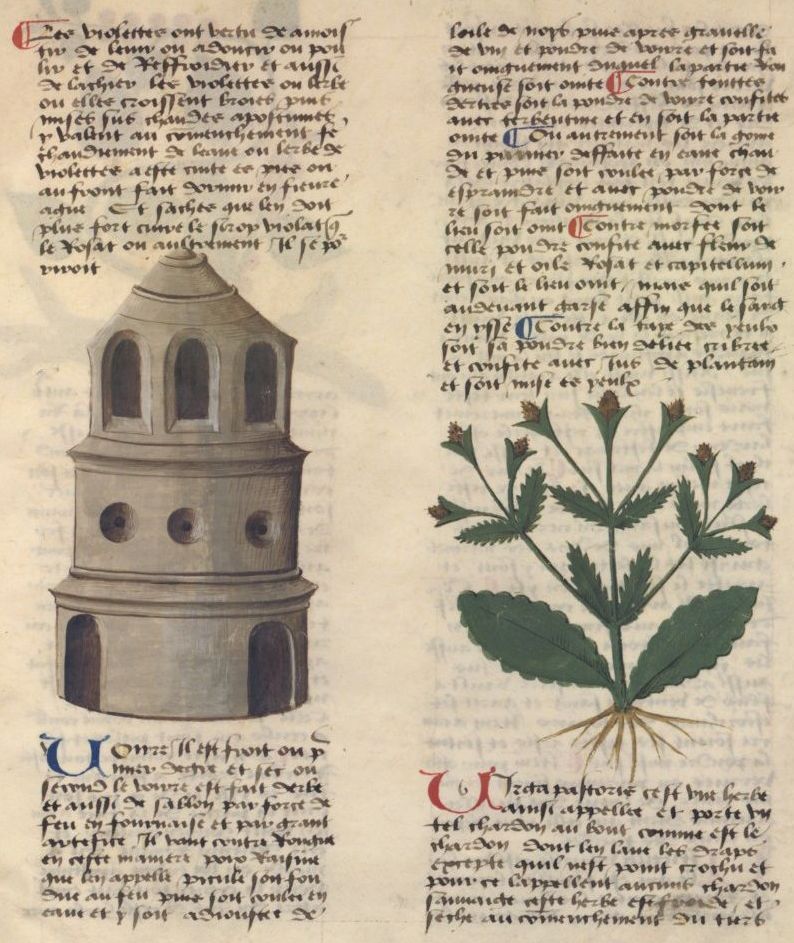 Les violettes ont vertu de amois
tir de lenir ou adoucir ou pou
lir et de Reffroidier et aussi
de lachier les violettes ou lerbe
ou elles croissent broies puis
mises sus chaudes apostumes
y valent au comenchement se
chaudiement de leaue ou lerbe de
violettes a este cuite es pies ou
au front fait dormir en fieure
ague Et saches que len doit
plus fort cuire le sirop violat q
le Rosat ou aultrement Il se po
riroit
Uoirre Il est froit ou p
mier degre et sec ou
second le voirre est fait derbe
et aussi de sablon par force de
feu en fournaise et par grant
artefice Il vaut contre Rongne
en ceste maniere poix Raisine
que len appelle picule soit fon
due au feu puis soit coulee en
eaue et y soit adioustee de
loile de nois puis apres grauelle
de vin et poudre de voirre et soit fa
it oinguement duquel la partie Ron
gneuse soit ointe Contre touttes
dertres soit la poudre de voirre confite
auec terbentine et en soit la partie
ointe Ou autrement soit la gome
du prunier deffaite en eaue chau
de et puis soit coulee par force de
espraindre et auec poudre de voir
re soit fait oinguement dont le
lieu soit oint Contre morfee soit
celle poudre confite auec fleur de
muri et oile Rosat et capitellum
et soit le lieu oint mais quil soit
audeuant garse affin que le sang
en ysse Contre la taye des yeulx
soit sa poudre bien deliee cribree
et confite auec Jus de plantain
et soit mise es yeulx
Uirga pastoris cest une herbe
ainsi appellee et porte vn
tel chardon au bout comme est le
chardon dont len laue les draps
excepte quil nest point crochu et
pour ce lappellent aucuns chardon
sauuaige ceste herbe est froide et
seche au comenchement du tiers